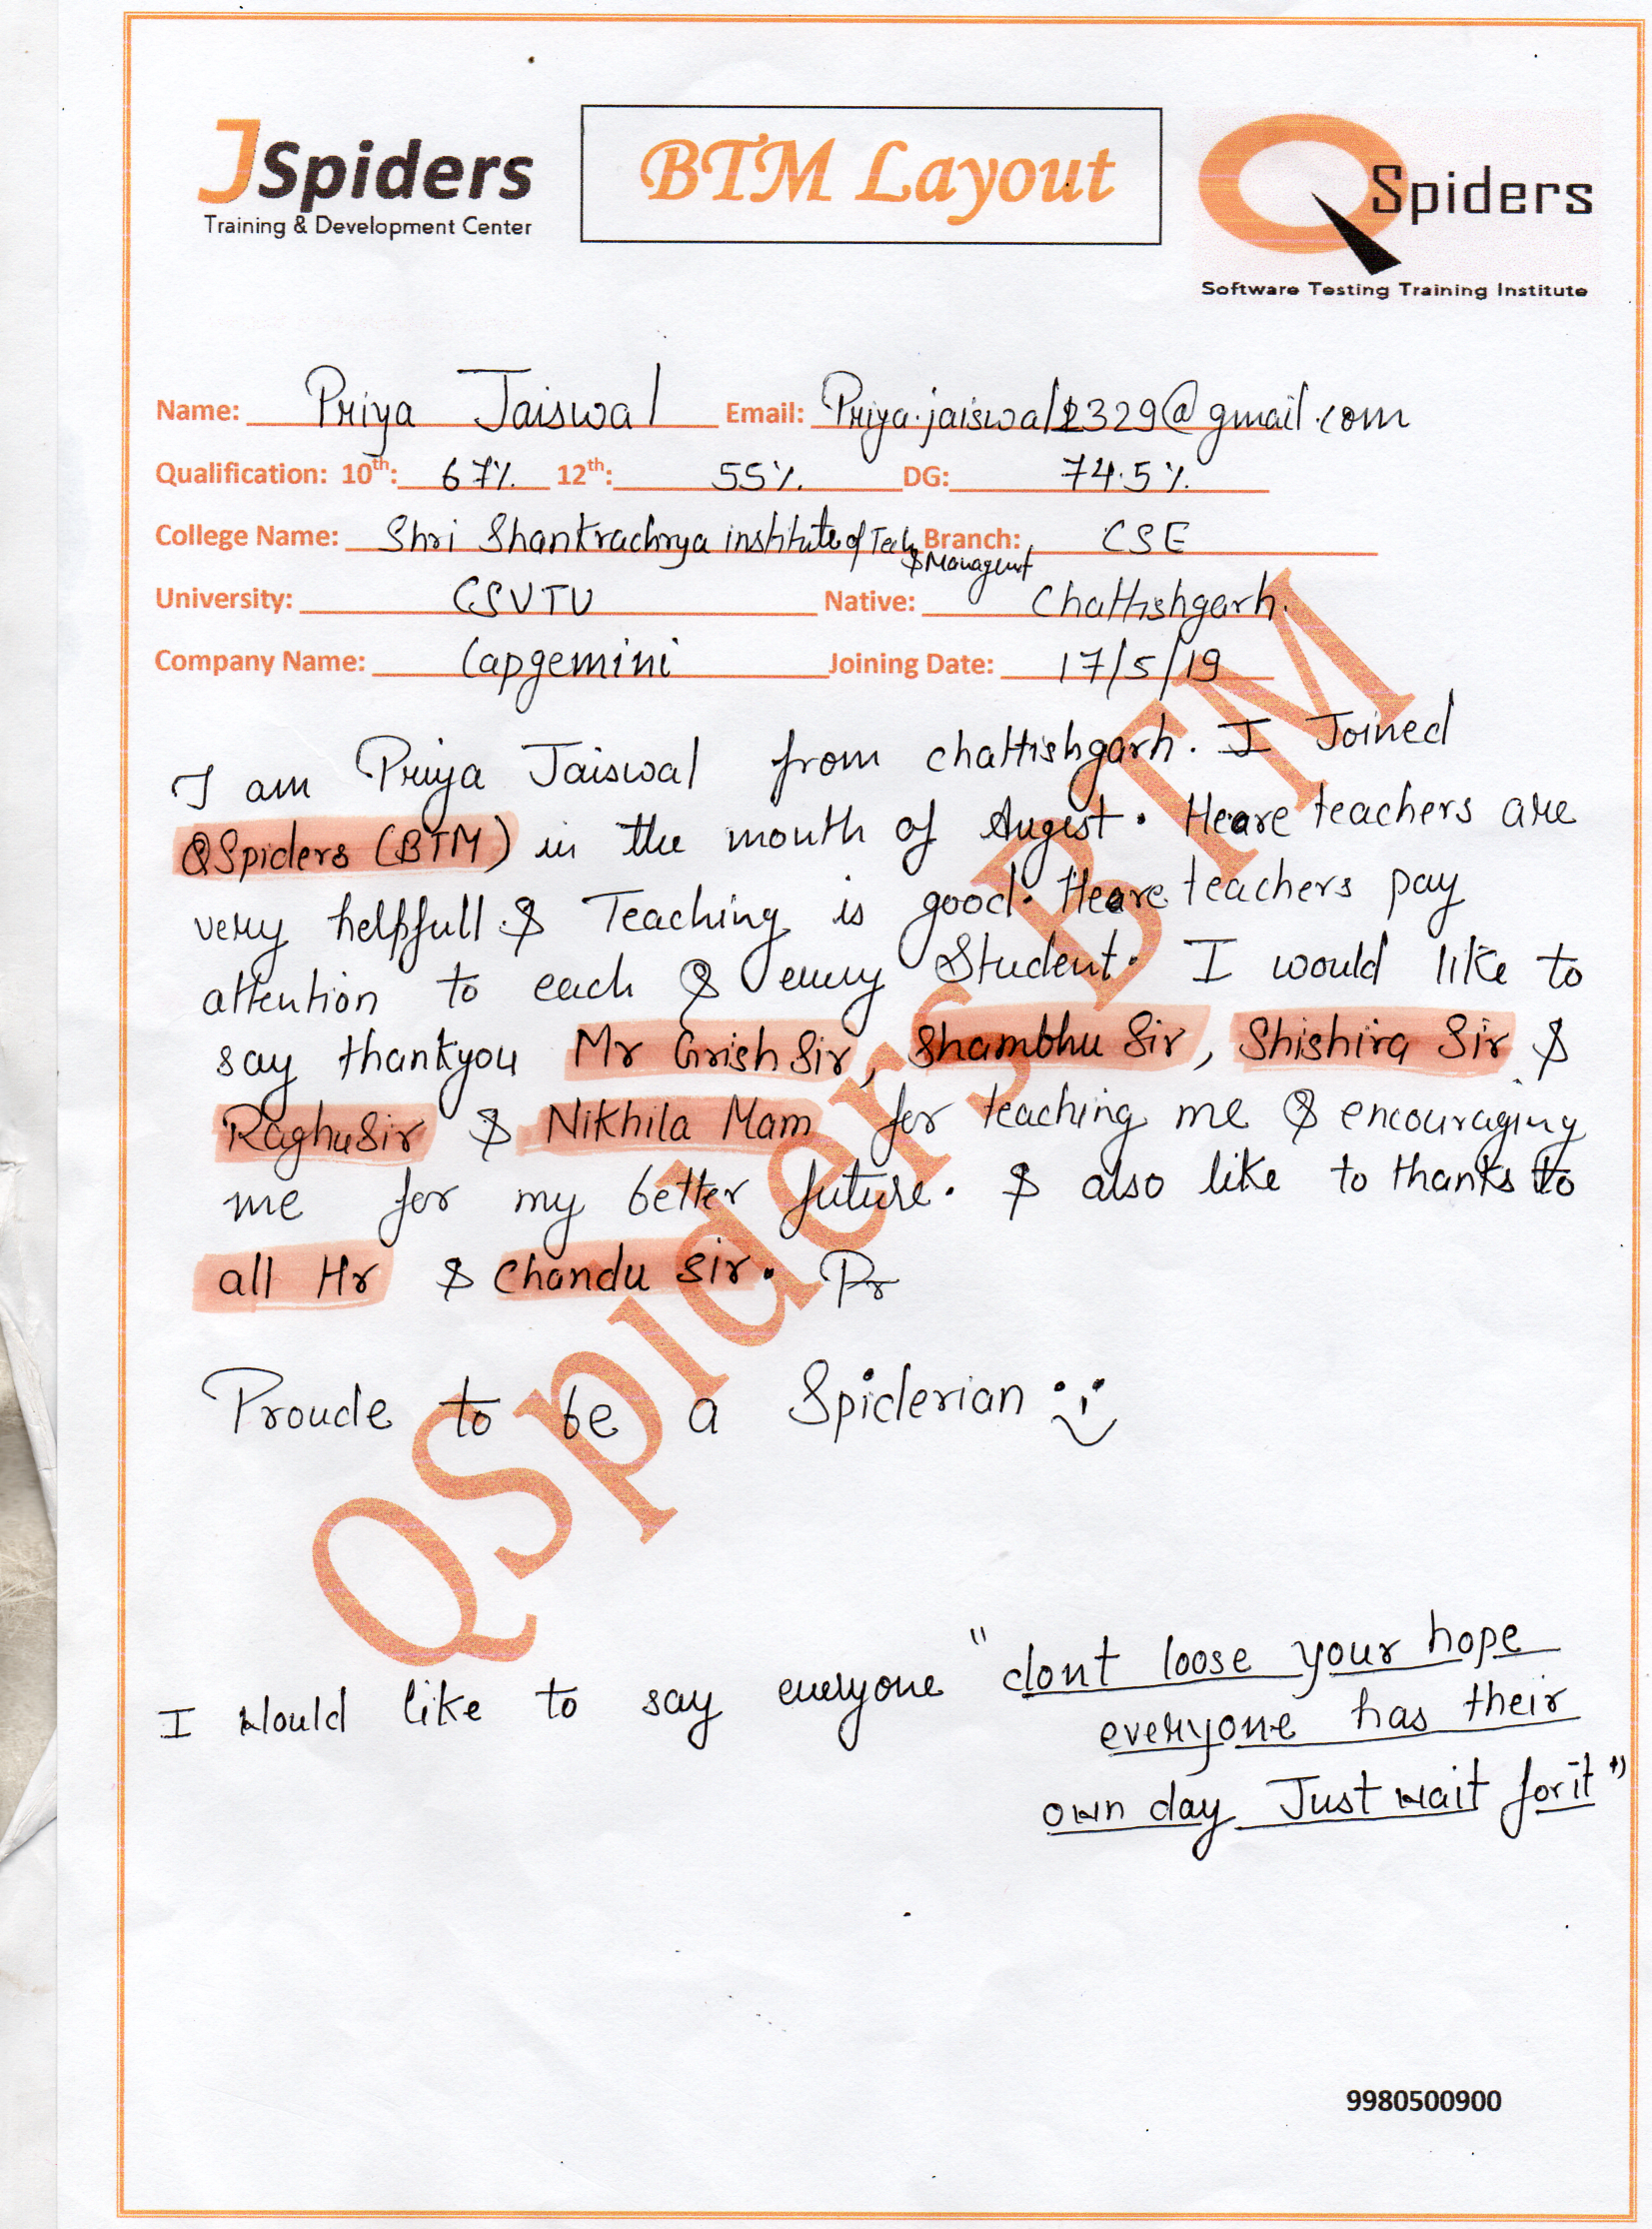 JSpiders
Training & Development Center
BTM Layout
QSpiders
Software Testing Training Institute
Name: Priya Jaiswal Email: Priya.jaiswal2329@gmail.com
Qualification: 10th: 67% 12th: 55% DG: 74.5%
College Name: Shri Shankrachrya institute of Tech & Managemt Branch: CSE
University: CSVTU Native: Chattishgarh.
Company Name: Capgemini Joining Date: 17/5/19
I am Priya Jaiswal from chattishgarh. I Joined
QSpiders (BTM) in the month of August. Heare teachers are
very helpfull & Teaching is good. Heare teachers pay
attention to each & every Student. I would like to
say thankyou Mr Grish Sir, Shambhu Sir, Shishira Sir &
Raghu Sir & Nikhila Mam for teaching me & encouraging
me for my better future. & also like to thanks to
all Hr & Chandu Sir. Pr
Proude to be a Spiderian
I would like to say everyone "dont loose your hope
everyone has their
own day Just wait for it"
QSpiders BTM
9980500900